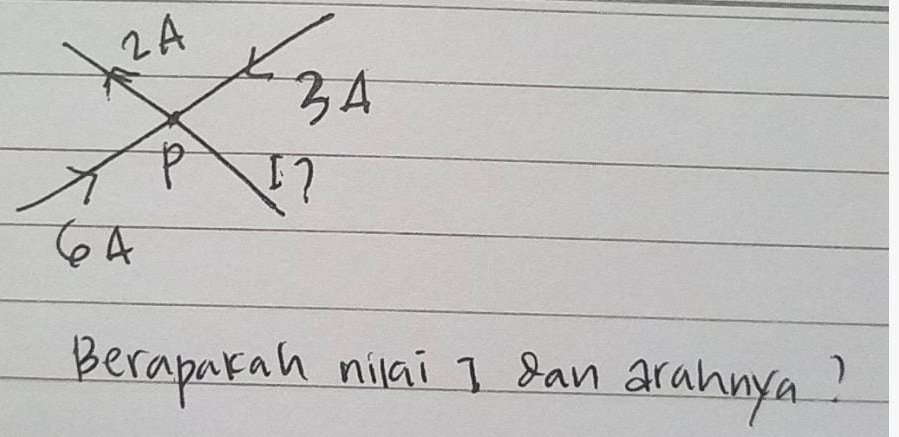 2A
3A
P
I?
6A
Berapakah nilai I dan arahnya?